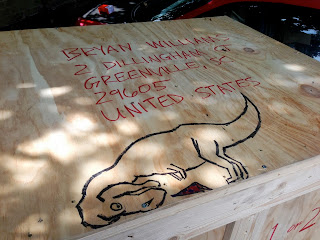 BEYAN WILLIAMS
2 DILLINGHAM CT
GREENVILLE, SC
29605
UNITED STATES